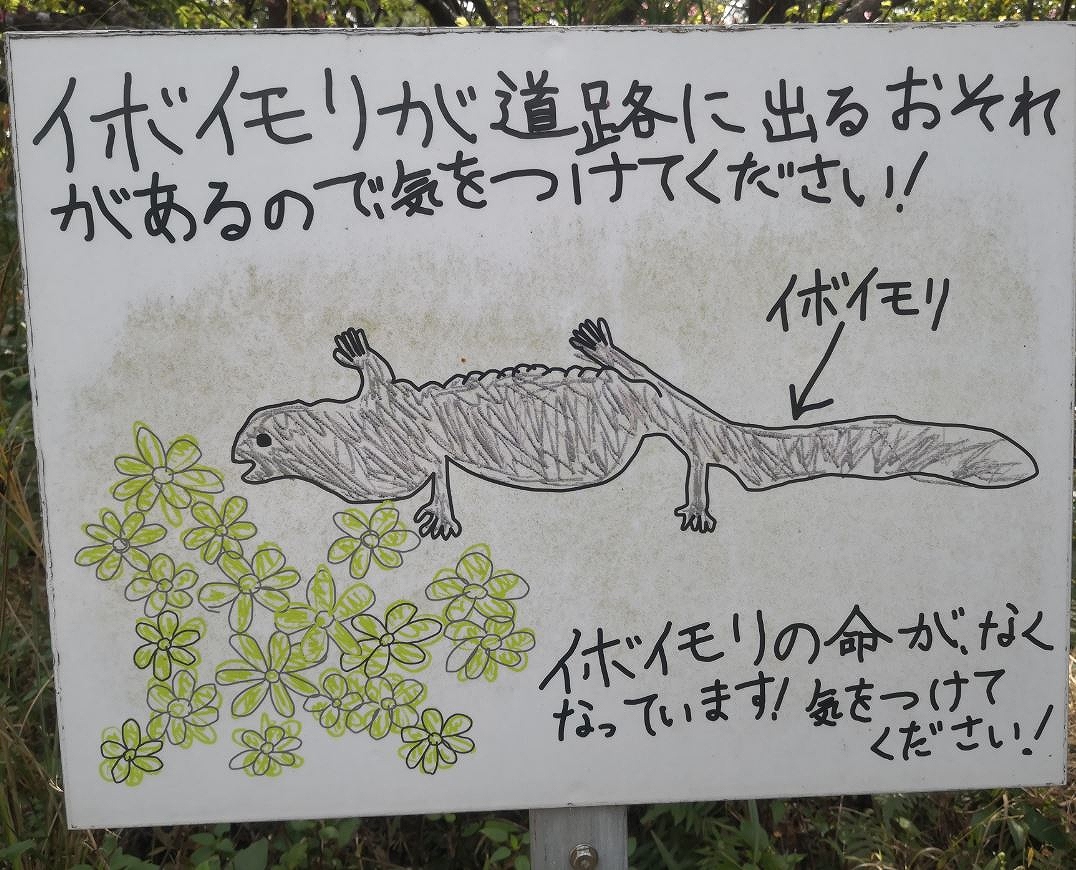 イボイモリが道路に出るおそれ
があるので、気をつけてください!
イボイモリ
イボイモリの命が、なく
なっています!気をつけて
ください!